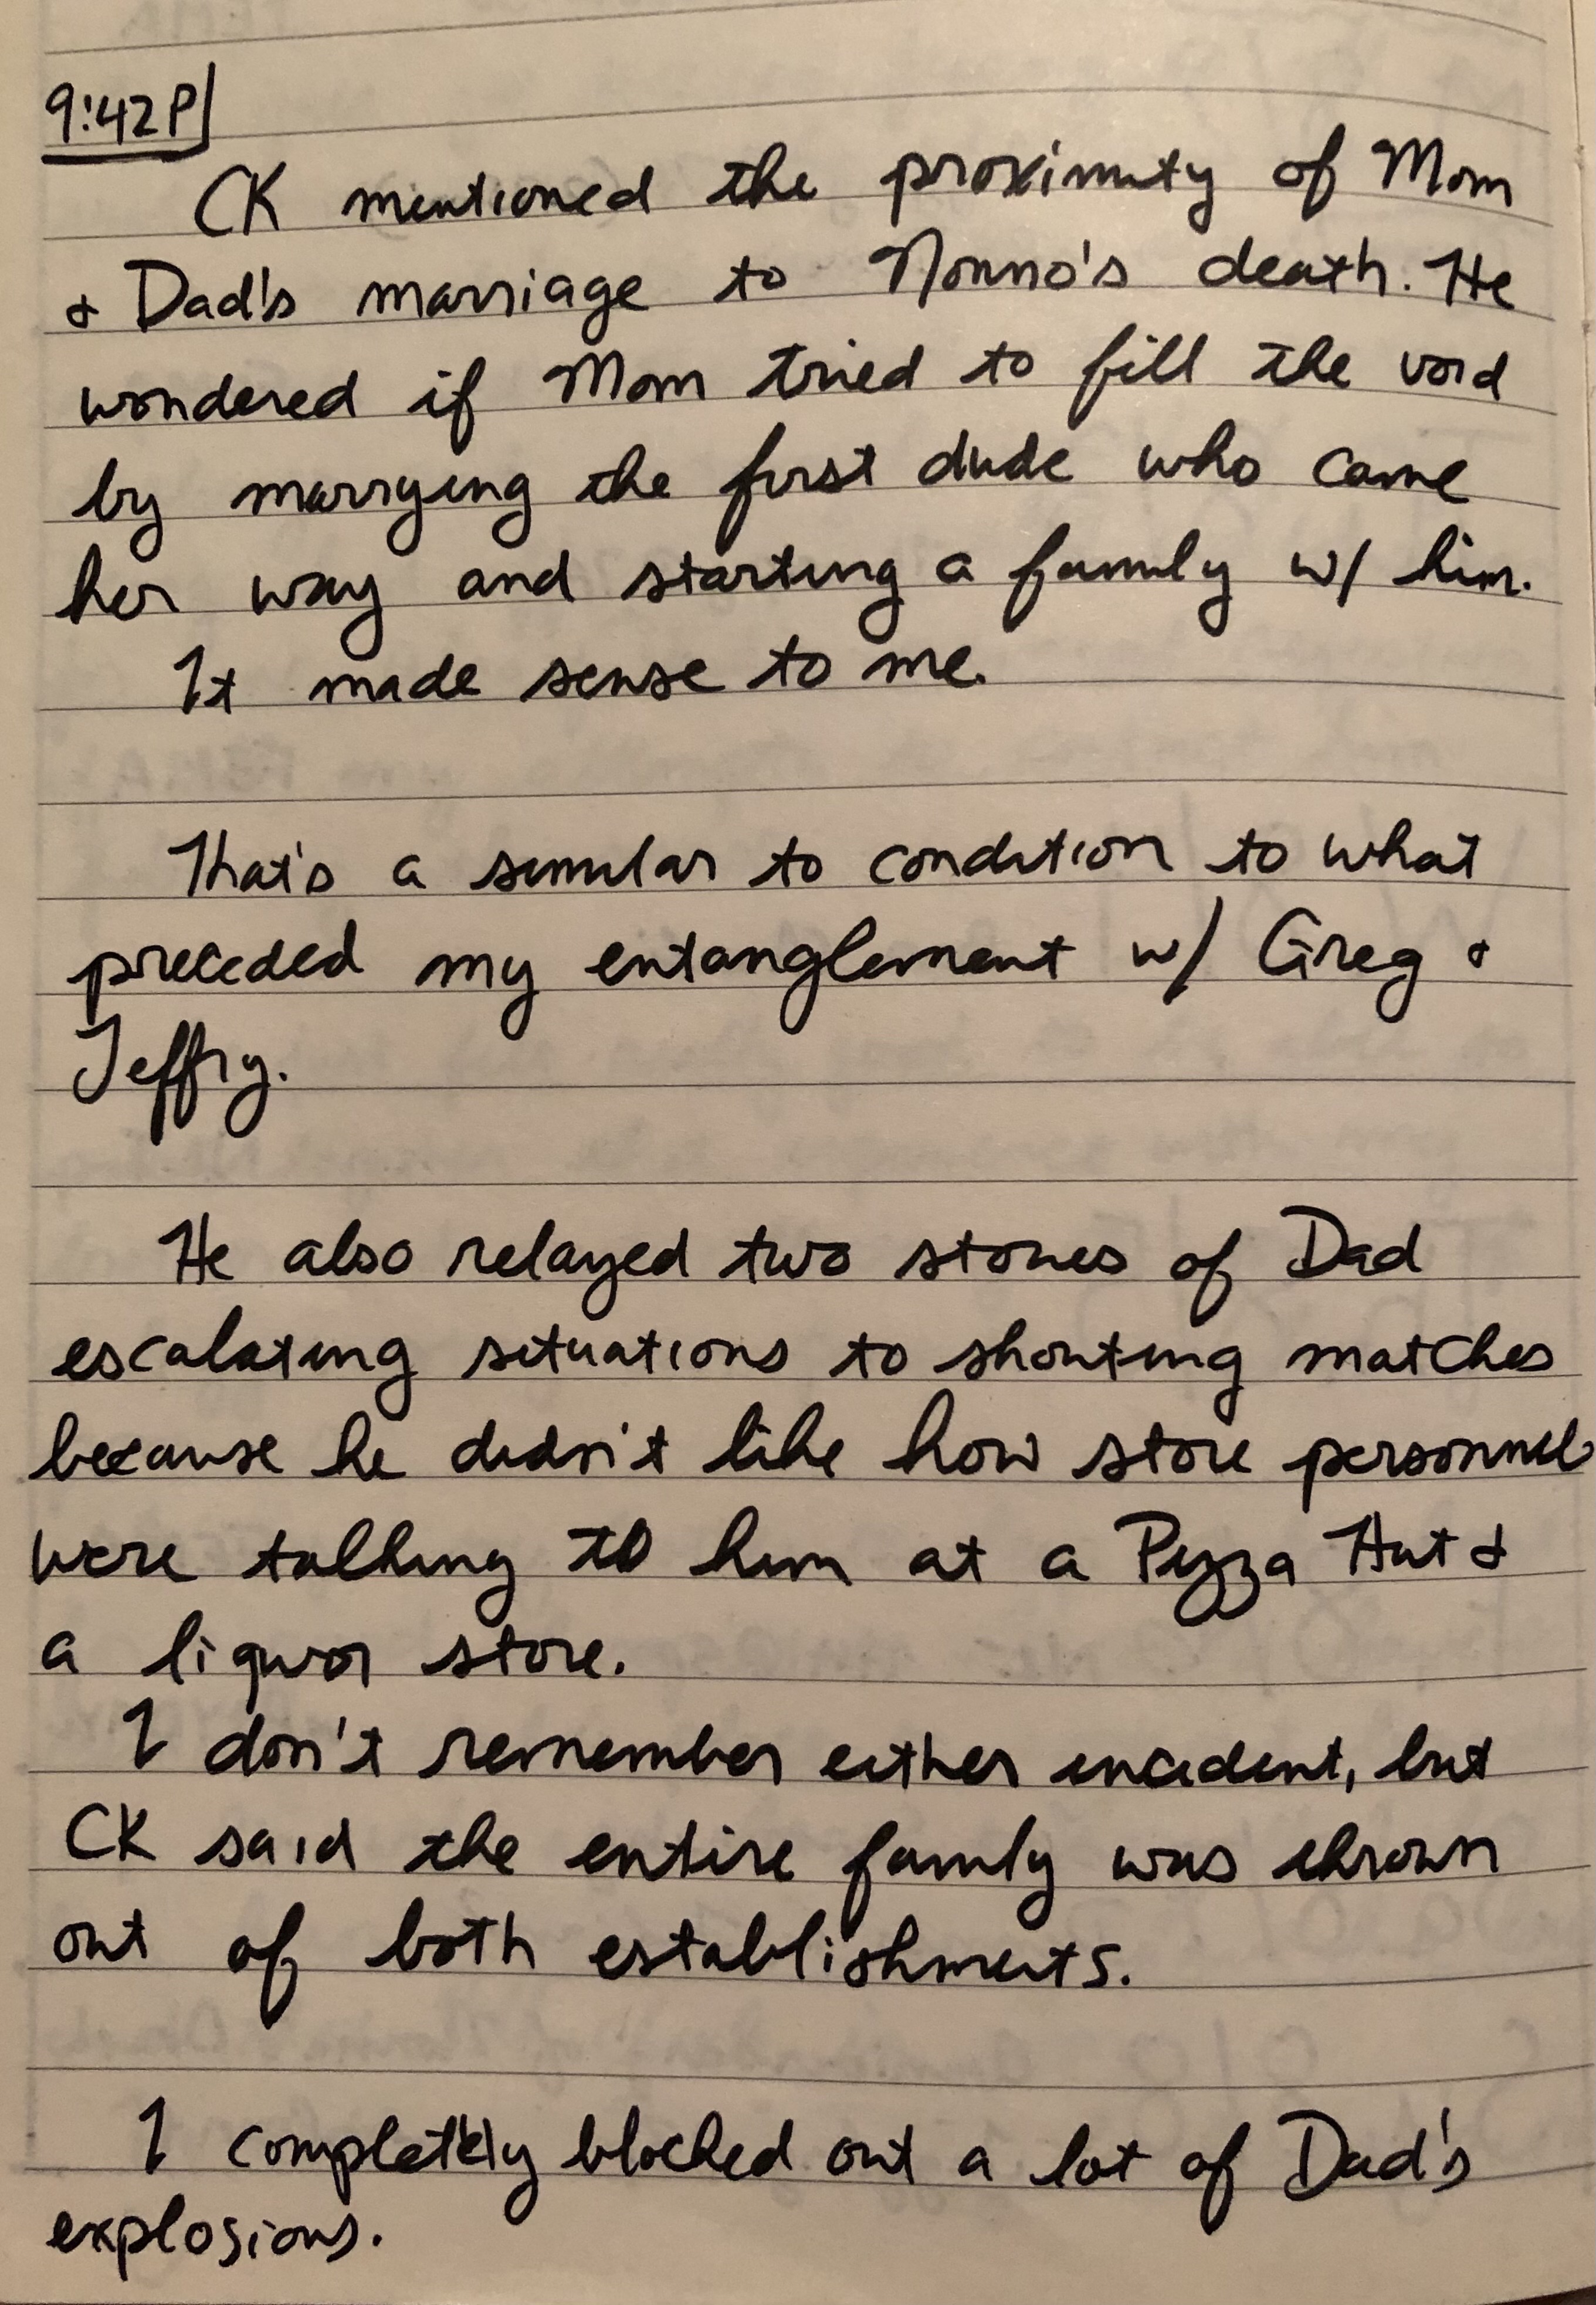 9:42P
CK mentioned the proximity of Mom
& Dad's marriage to Nonno's death. He
wondered if Mom tried to fill the void
by marrying the first dude who came
her way and starting a family w/ him.
It made sense to me.
That's a similar to condition to what
preceded my entanglement w/ Greg &
Jeffry.
He also relayed two stories of Dad
escalating situations to shouting matches
because he didn't like how store personnel
were talking to him at a Pizza Hut &
a liquor store.
I don't remember either incident, but
CK said the entire family was thrown
out of both establishments.
I completely blocked out a lot of Dad's
explosions.